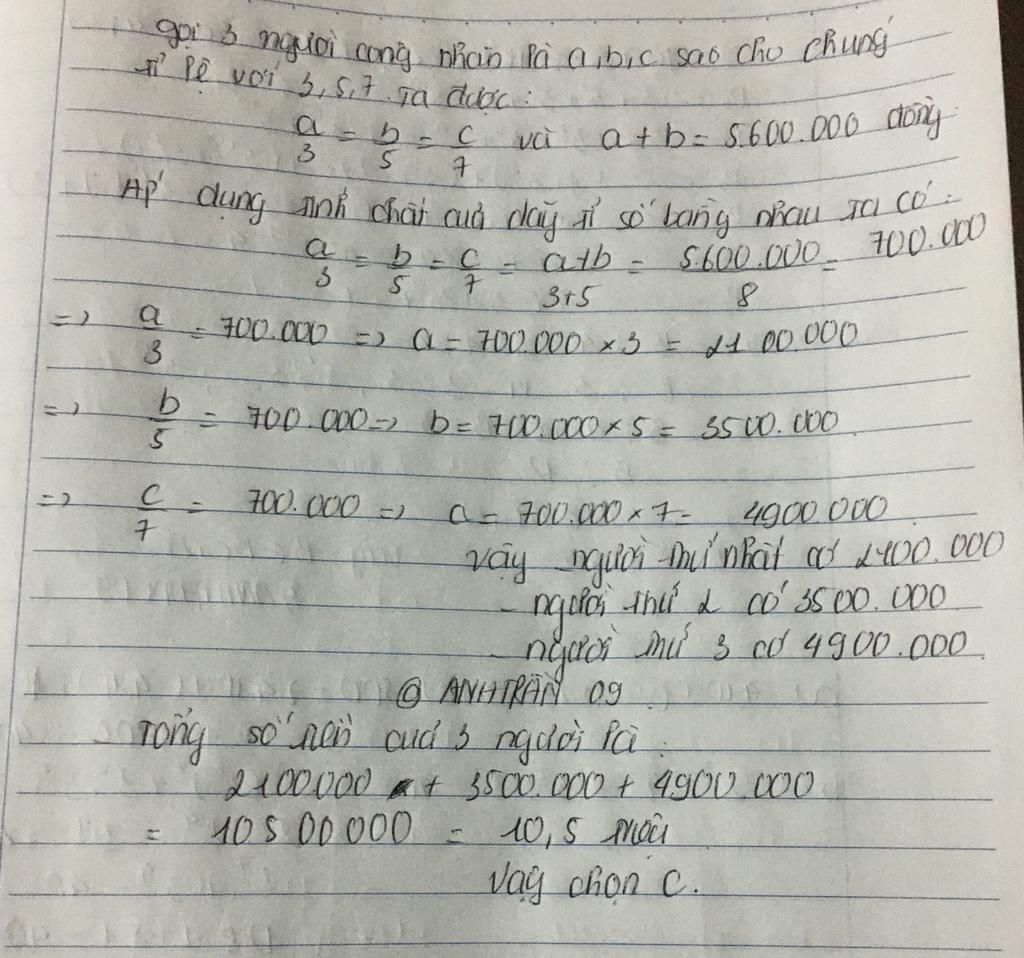 gọi 3 người công nhân là a,b,c sao cho chúng
tỉ lệ với 3,5,7. Ta được:
a/3 = b/5 = c/7 và a + b = 5.600.000 đồng
Áp dụng tính chất của dãy tỉ số bằng nhau ta có:
a/3 = b/5 = c/7 = a+b/3+5 = 5.600.000/8 = 700.000
=> a/3 = 700.000 => a = 700.000 × 3 = 2100.000
=> b/5 = 700.000 => b = 700.000 × 5 = 3500.000
=> c/7 = 700.000 => a = 700.000 × 7 = 4900.000
vậy người thứ nhất có 2100.000
- người thứ 2 có 3500.000
- người thứ 3 có 4900.000
@ ANHTRẦN 09
Tổng số tiền của 3 người là:
2100000 + 3500.000 + 4900.000
= 10500000 = 10,5 triệu
Vậy chọn C.